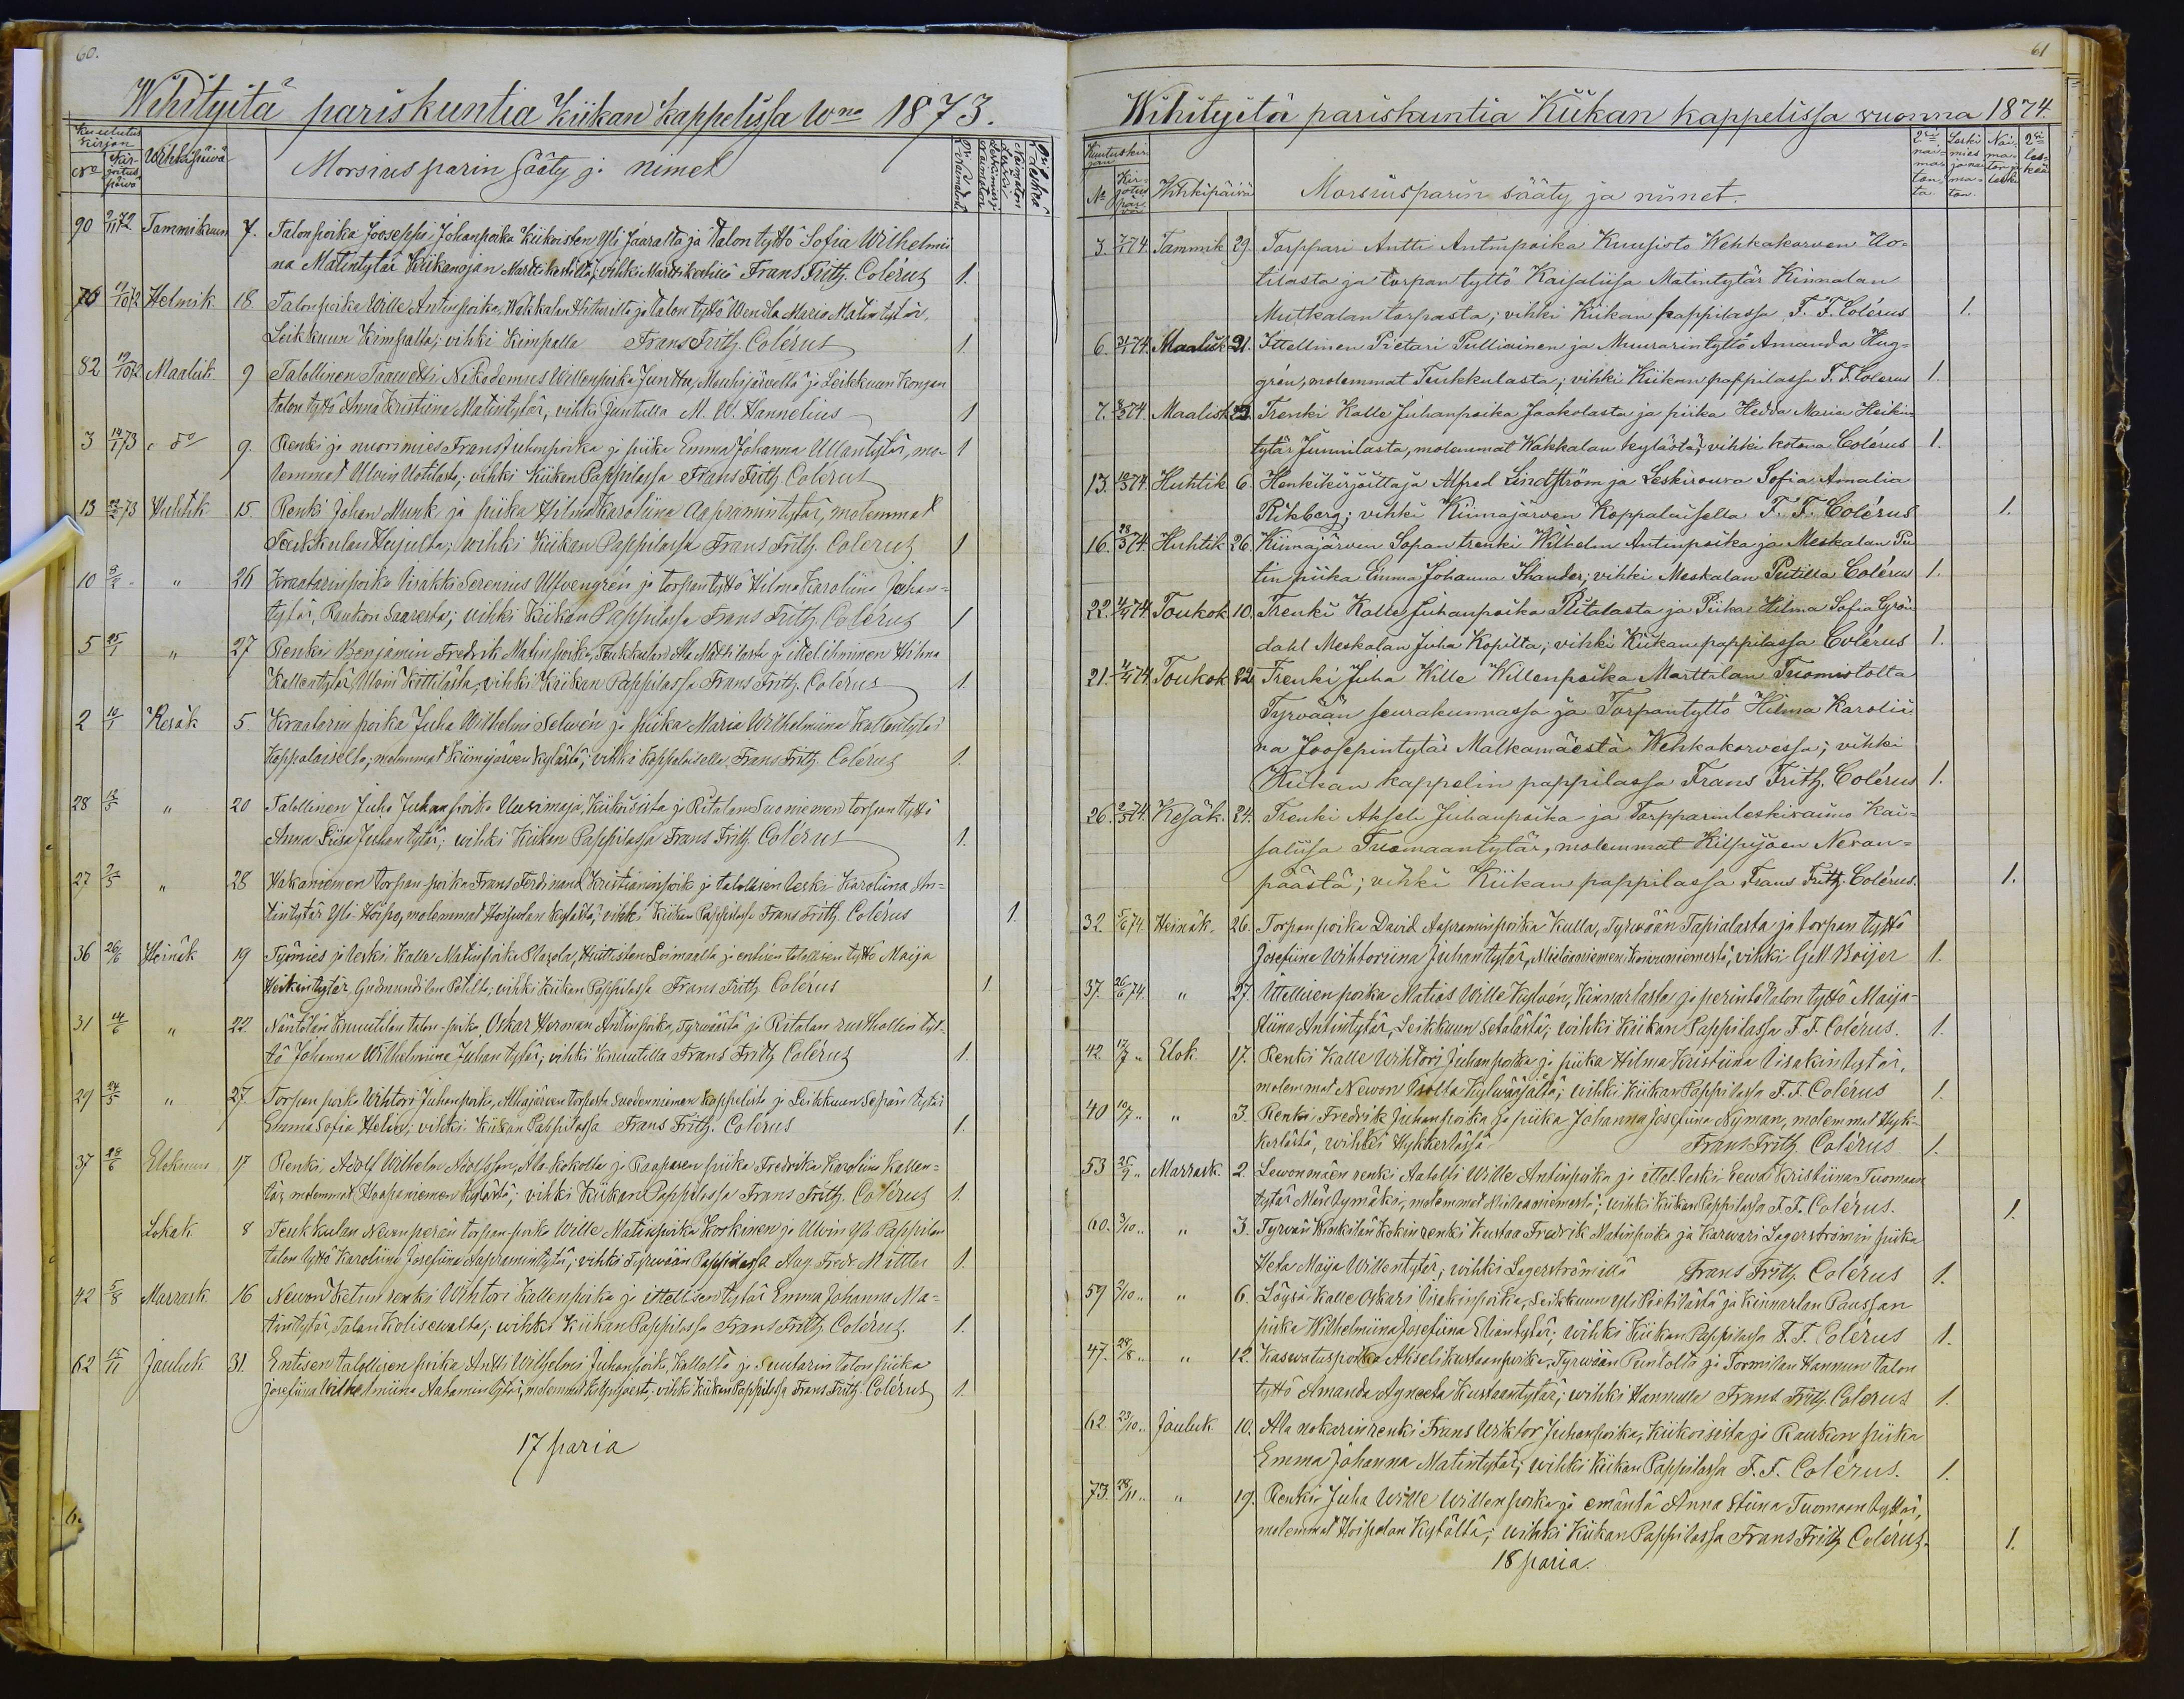 60.
Wihityitä pariskuntia Kiikan kappelissa wna 1873.
Kuulutus kirjan
No Kirjoitus päivä Wihkipäivä Morsius parin Sääty ja nimet
90 9/11 72 Tammikuun 7. Talonpoika Jooseppi Johanpoika Kiikoisten Yli Jaaralta ja Talon tyttö Sofia Wilhelmii
na Matintytär Kiikanojan Marttikestiltä; vihki Marttikestissä Frans Frith. Colérus 1.
76 19/10 72 Helmik. 18 Talonpoika Wille Antinpoika, Wakkalan Hiturilta ja talon tyttö Wendla Maria Matintytär,
Leikkuun Kimpalta; vihki Kimpalla Frans Frith. Colérus 1.
82 19/10 72 Maalisk 9 Talollinen Taawetti Nikodemus Willenpoika Junttu, Mouhijärveltä ja Leikkuun Konjan
talon tyttö Anna Kristiina Matintytär, vihki Juntulla M. W. Hannelius 1
3 14/1 73 " do 9. Renki ja nuorimies Frans Juhanpoika ja piika Emma Johanna Ullantytär, mo- 1
lemmat Ulvin Uotilasta; vihki Kiikan Pappilassa Frans Frith. Colérus
13 22/2 73 Huhtik 15. Renki Johan Munk ja piika Hilma Karoliina Aapramintytär, molemmat
Teukkulan Heijulta; vihki Kiikan Pappilassa Frans Frith. Colérus 1
10 " 26 Kraatarinpoika Iisakki Serenius Ulfvengrén ja torpantyttö Hilma Karoliina Johan-
tytär, Raukon Saaresta; vihki Kiikan Pappilassa Frans Frith. Colérus 1
5 25/1 " 27 Renki Benjamin Fredrik Matinpoika, Teukkulan Ala Mattilasta ja itellihminen Hilma
Kallentytär Ulvin Kittilästä; vihki Kiikan Pappilassa Frans Frith. Colérus 1.
2 10/1 Kesäk 5. Kraatarin poika Juha Wilhelmi Selwén ja piika Maria Wilhelmiina Kallentytär
Koppalaiselta; molemmat Kiimajärven kylästä; vihki Koppalaisella Frans Frith. Colérus 1.
28 12/5 " 20 Talollinen Juha Juhanpoika Uusimaja, Kiikoisista ja Ritalan Suoniemen torpan tyttö
Anna Liisa Juhantytär; vihki Kiikan Pappilassa Frans Frith. Colérus 1.
27 2/5 " 28 Hakaniemen torpan poika Frans Ferdinand Kristianinpoika ja talollisen leski Karoliina An-
tintytär Yli Hoipo, molemmat Hoipolan kylästä; vihki Kiikan Pappilassa Frans Frith. Colérus 1.
36 26/6 Heinäk 19 Työmies ja leski Kalle Matinpoika Plasola, Huittisten Loimaalta ja entisen talollisen tyttö Maija
Heikintytär, Gudmundilan Pätiltä; vihki Kiikan Pappilassa Frans Frith. Colérus 1
31 14/6 " 22. Näntölän Knuutilan talon-poika Oskar Herman Antinpoika, Tyrwäästä ja Ritalan rusthollin tyt-
tö Johanna Wilhelmiina Juhantytär; vihki Knuutilla Frans Frith. Colérus 1.
29 24/5 " 27. Torpan poika Wihtori Juhanpoika, Alhajärven torpasta Suodenniemen kappelista ja Leikkuun Sepän tytär
Emma Sofia Helin; vihki Kiikan Pappilassa Frans Frith. Colérus 1.
37 28/6 Elokuun 17 Renki Adolf Wilhelm Adolfsson, Ala-Kokolta ja Raaposen piika Fredrika Karoliina Kallen-
tär, molemmat Haapaniemen kylästä; vihki Kiikan Pappilassa Frans Frith. Colérus 1.
Lokak 8 Teukkulan Newonperän torpan poika Wille Matinpoika Koskinen ja Ulvin Yli Pappilan
talon tyttö Karoliina Josefiina Aapramintytär; vihki Tyrwään Pappilassa Aug. Fredr. Mittler 1.
42 5/8 Marrask. 16 Newon Ketun renki Wihtori Kallenpoika ja ittellisen tytär Emma Johanna Ma-
tintytär, Talan Kolisewalta; vihki Kiikan Pappilassa Frans Frith. Colérus. 1.
62 15/11 Jouluk 31. Entisen talollisen poika Antti Wilhelmi Juhanpoika, Kallolta ja Suutarin talon piika
Josefiina Wilhelmiina Aatamintytär, molemmat Kilpijoesta; vihki Kiikan Pappilassa Frans Frith. Colérus 1.
17 paria
61
Wihityitä pariskuntia Kiikan kappelissa vuonna 1874.
No Kirjotus päivä Wihkipäivä Morsiusparin sääty ja nimet.
3. 7/1 74. Tammik 29. Torppari Antti Antinpoika Kuusisto Wehkakorven Uo-
tilasta ja torpan tyttö Kaisaliisa Matintytär Kinnalan
Mutkalan torpasta; vihki Kiikan pappilassa F. F. Colérus 1.
6. 31/1 74. Maalisk 21. Ittellinen Pietari Pulliainen ja Muurarintyttö Amanda Hug-
grén, molemmat Teukkulasta; vihki Kiikan pappilassa F. F. Colerus 1.
7. 8/3 74. Maalisk 22. Trenki Kalle Juhanpoika Jaakolasta ja piika Hedda Maria Heikin
tytär Junnilasta, molemmat Wakkalan kylästä; vihki kotona Colérus 1.
13. 18/3 74. Huhtik 6. Henkikirjoittaja Alfred Lindström ja Leskirouva Sofia Amalia
Rikberg; vihki Kiimajärven Koppalaisella F. F. Colérus 1.
16. 28/3 74. Huhtik 26. Kiimajärven Sopan trenki Wilhelm Antinpoika ja Meskalan Pu
tin piika Emma Johanna Thander; vihki Meskalan Putilla Colérus 1.
22. 11/4 74 Toukok 10. Trenki Kalle Juhanpoika Ritalasta ja Piika Hilma Sofia Grön
dahl Meskalan Juha Kopilta; vihki Kiikan pappilassa Colérus 1.
21. 4/4 74 Toukok 22. Trenki Juha Wille Willenpoika Marttilan Tuomistolta
Tyrvään seurakunnassa ja Torpantyttö Hilma Karolii-
na Joosepintytär Malkamäestä Wehkakorvessa; vihki
Kiikan kappelin pappilassa Frans Frith. Colérus 1.
26. 2/5 74. Kesäk. 24. Trenki Akseli Juhanpoika ja Torpparinleskivaimo Kai-
saliisa Tuomaantytär, molemmat Kilpijoen Nevan-
päästä; vihki Kiikan pappilassa Frans Frith. Colérus. 1.
32. 5/6 74. Heinäk. 26. Torpan poika David Aapraminpoika Kulla, Tyrwään Tapialasta ja torpan tyttö
Josefiina Wihtoriina Juhantytär, Kiikanniemen Koivuniemestä; vihki G. M. Boijer 1.
37. 26/6 74. " 27. Ittellisen poika Matias Wille Kylvén, Kinnarlasta ja perintötalon tyttö Maija-
stiina Antintytär, Leikkuun Setälästä; vihki Kiikan Pappilassa F. F. Colérus. 1.
42. 12/7 " Elok. 17. Renki Kalle Wihtori Juhanpoika ja piika Hilma Kristiina Iisakin tytär,
molemmat Newon Isolta Kylwäsjältä; vihki Kiikan Pappilassa F. F. Colérus 1.
40 10/7 " " 3. Renki Fredrik Juhanpoika ja piika Johanna Josefiina Nyman, molemmat Hyk-
kerlästä, wihki Hykkerlässä Frans Frith. Colérus 1.
53 25/9 " Marrask. 2. Lewonmäen renki Aatolfi Wille Antinpoika ja ittel. leski Eewa Kristiina Tuomaan
tytär Mäntymäki, molemmat Kiikanniemestä; wihki Kiikan Pappilassa F. F. Colérus. 1.
60. 3/10 " " 3. Tyrwään Kinkilän Kokin renki Kustaa Fredrik Matinpoika ja Karwari Lagerströmin piika
Heta Maija Willentytär; wihki Lagerströmillä Frans Frith. Colérus 1.
59 2/10 " " 6. Löysä Kalle Oskari Iisakinpoika, Leikkuun Yli Pietilästä ja Kinnarlan Paussan
piika Wilhelmiina Josefiina Eliantytär; wihki Kiikan Pappilassa F. F. Colérus 1.
47. 29/8 " " 12. Kaswatuspoika Akseli Kustaanpoika, Tyrwään Puntolta ja Tormilan Hannun talon
tyttö Amanda Agneeta Kustaantytär; wihki Hannulla Frans Frith. Colérus 1.
62. 23/10 " Jouluk. 10. Ala nokarin renki Frans Wiktor Juhanpoika, Kiikoisista ja Raukon piika
Emma Johanna Matintytär; wihki Kiikan Pappilassa F. F. Colérus. 1.
73. 28/11 " " 19. Renki Juha Wille Willenpoika ja emäntä Anna Stiina Tuomaan tyttär,
molemmat Hoipolan Kylältä; wihki Kiikan Pappilassa Frans Frith. Colérus. 1.
18 paria.